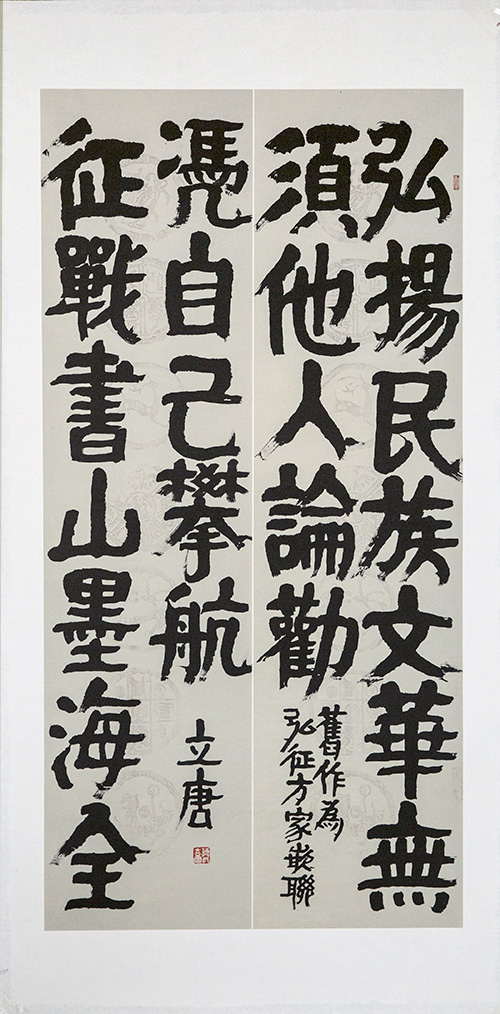 弘揚民族文華無
須他人論勸
舊作為
弘征方家嵌聯
征戰書山墨海全
凴自己攀航
立唐